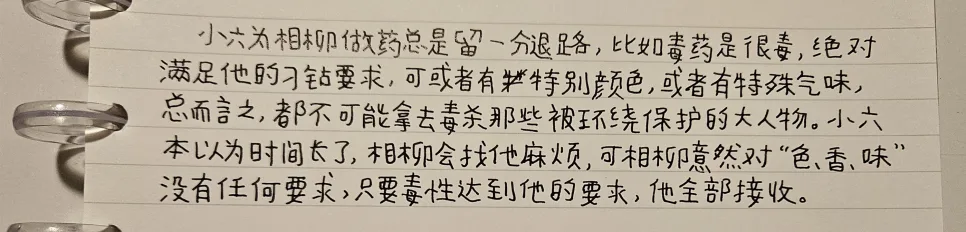 小六为相柳做药总是留一分退路，比如毒药是很毒，绝对
满足他的刁钻要求，可或者有特别颜色，或者有特殊气味，
总而言之，都不可能拿去毒杀那些被环绕保护的大人物。小六
本以为时间长了，相柳会找他麻烦，可相柳竟然对“色、香、味”
没有任何要求，只要毒性达到他的要求，他全部接收。